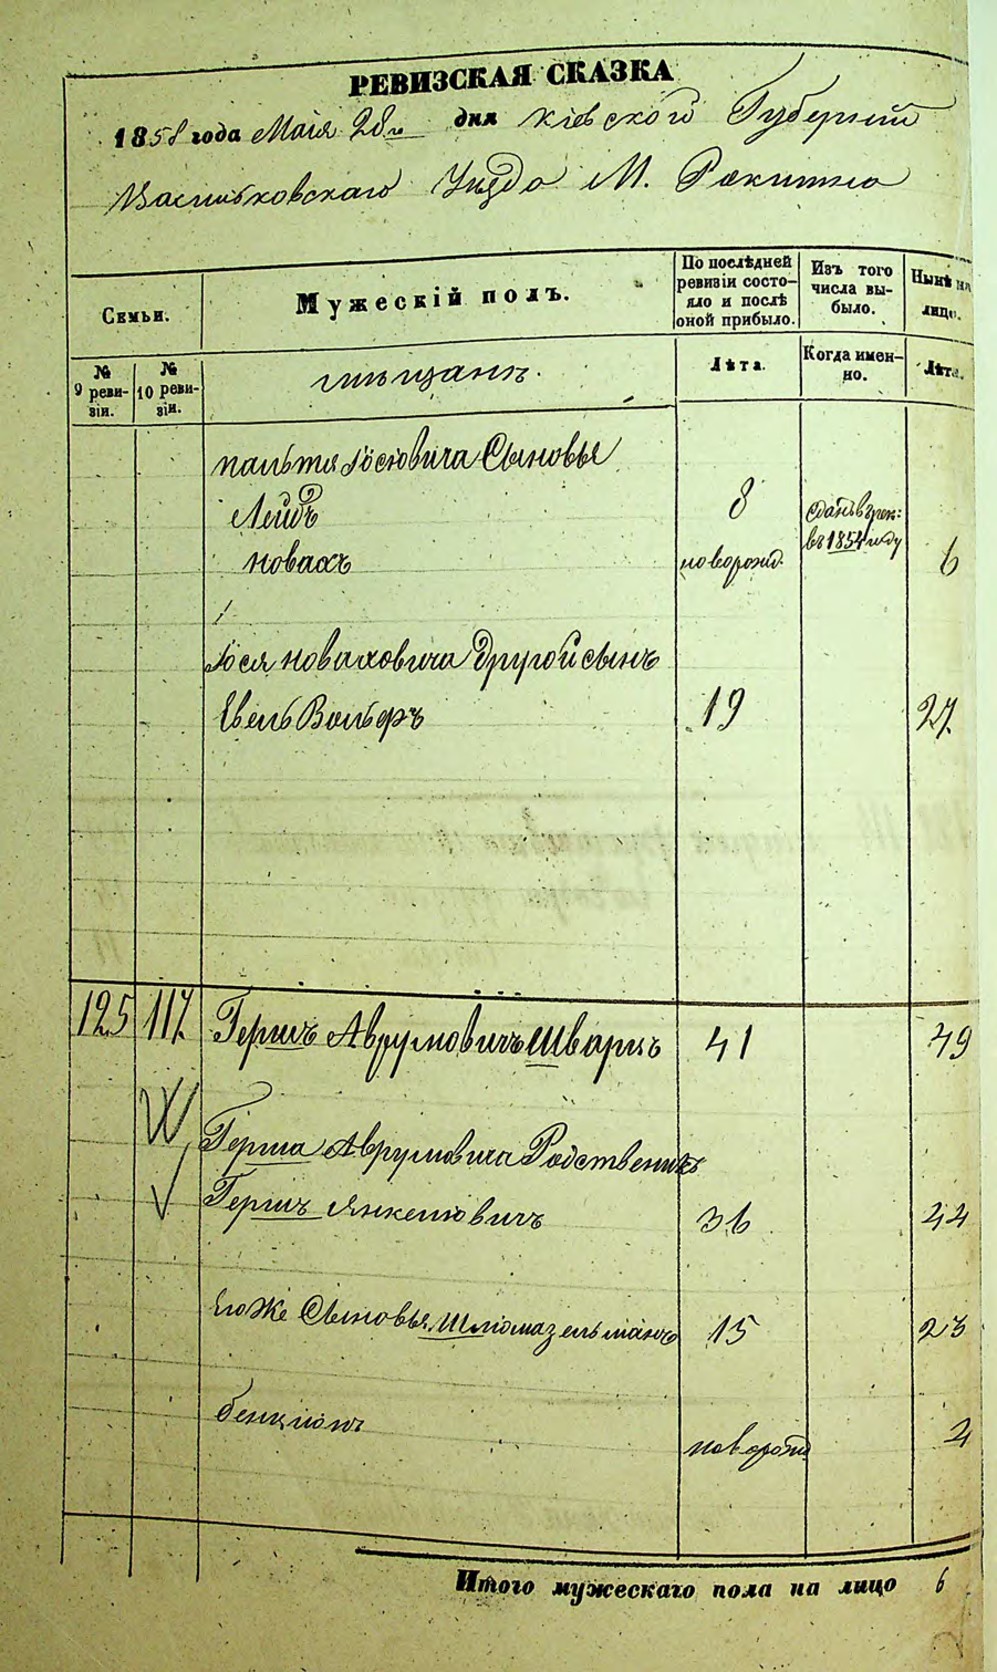 РЕВИЗСКАЯ СКАЗКА
1858 года Маія 28го дня Кіевскаго Губерніи
Васильковскаго Уѣзда М. Ракитно
Семьи.
Мужескій полъ.
По послѣдней ревизіи состояло и послѣ оной прибыло.
Изъ того числа выбыло.
Нынѣ на лицо.
№ 9 ревизіи.
№ 10 ревизіи.
мѣщане.
Лѣта.
Когда именно.
Лѣта.
Пальтя Іосіовича Сыновья
Лейбъ 8 сданъ в рек: въ 1854 году
Новахъ новорожд. 6
Іося Новаховича другой сынъ
Евель Вольфъ 19 27.
125 117. Гершъ Аврумовичъ Шварцъ 41 49
Герша Аврумовича Родственикъ
Гершъ Янкелiовичъ 36 44
Его же Сыновья Шлiома Зельманъ 15 23
Бенціонъ новорожд 4
Итого мужескаго пола на лицо 6